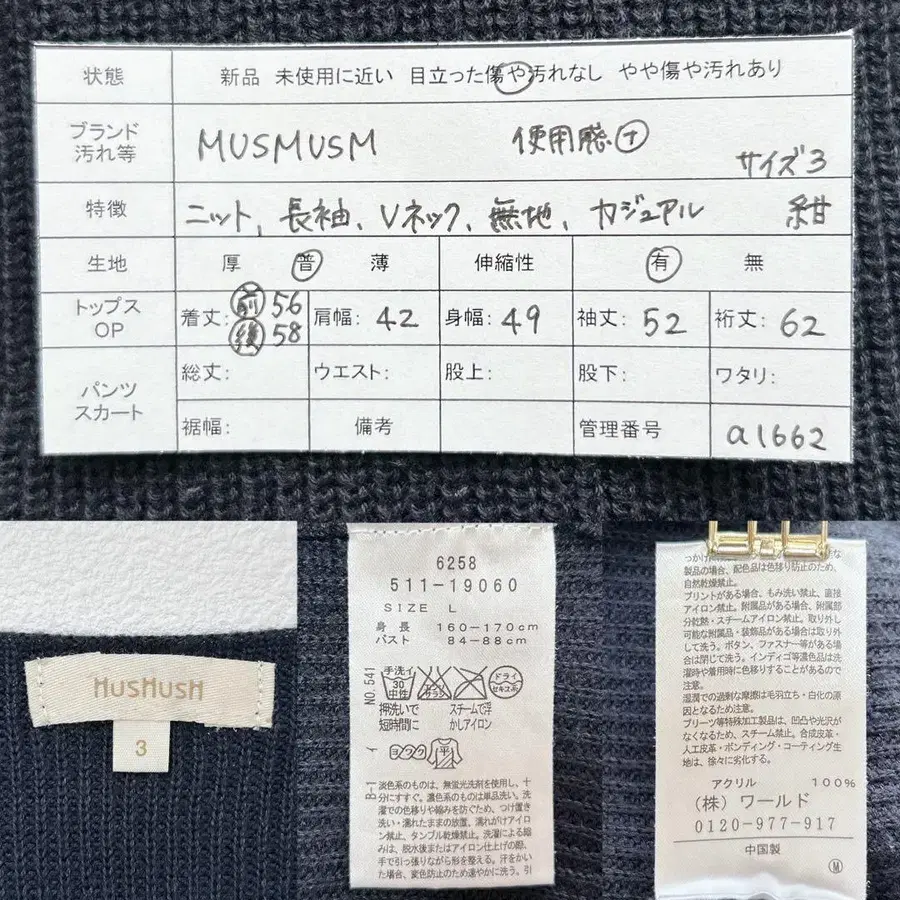 状態 新品 未使用に近い 目立った傷や汚れなし やや傷や汚れあり
ブランド
汚れ等 MUSMUSM 使用感(+) サイズ3
特徴 ニット、長袖、Vネック、無地、カジュアル 紺
生地 厚 普 薄 伸縮性 有 無
トップス
OP 着丈: 前56 肩幅: 42 身幅: 49 袖丈: 52 裄丈: 62
後58
パンツ
スカート 総丈: ウエスト: 股上: 股下: ワタリ:
裾幅: 備考 管理番号 a1662
MUSMUSM
3
6258
511-19060
SIZE L
身長 160-170cm
バスト 84-88cm
手洗イ
30
中性
ドライ
セキユ系
押洗いで
短時間に
スチームで浮
かしアイロン
ヨワク
平
NO.541
イ
B-1
淡色系のものは、無蛍光洗剤を使用し、十
分にすすぐ。濃色系のものは単品洗い。洗
濯での色移りや縮みを防ぐため、つけ置き
洗い・濡れたままの放置、濡れがけアイロ
ン禁止、タンブル乾燥禁止。洗濯による縮
みは、脱水後またはアイロン仕上げの際、
手で引っ張りながら形を整える。汗をかい
た場合、変色防止のため速やかに洗う。引
っかけ
製品の場合、配色品は色移り防止のため、
自然乾燥禁止。
プリントがある場合、もみ洗い禁止、直接
アイロン禁止。附属品がある場合、附属部
分乾熱・スチームアイロン禁止。取り外し
可能な附属品・装飾品がある場合は取り外
して洗う。ボタン、ファスナー等がある場
合は閉じて洗う。インディゴ等濃色品は洗
濯時や着用時に色移りすることがあるので
注意。
湿潤での過剰な摩擦は毛羽立ち・白化の原
因となるため注意。
プリーツ等特殊加工製品は、凹凸や光沢が
なくなるため、スチーム禁止。合成皮革・
人工皮革・ボンディング・コーティング生
地は、徐々に劣化する。
アクリル 100%
(株)ワールド
0120-977-917
中国製
M